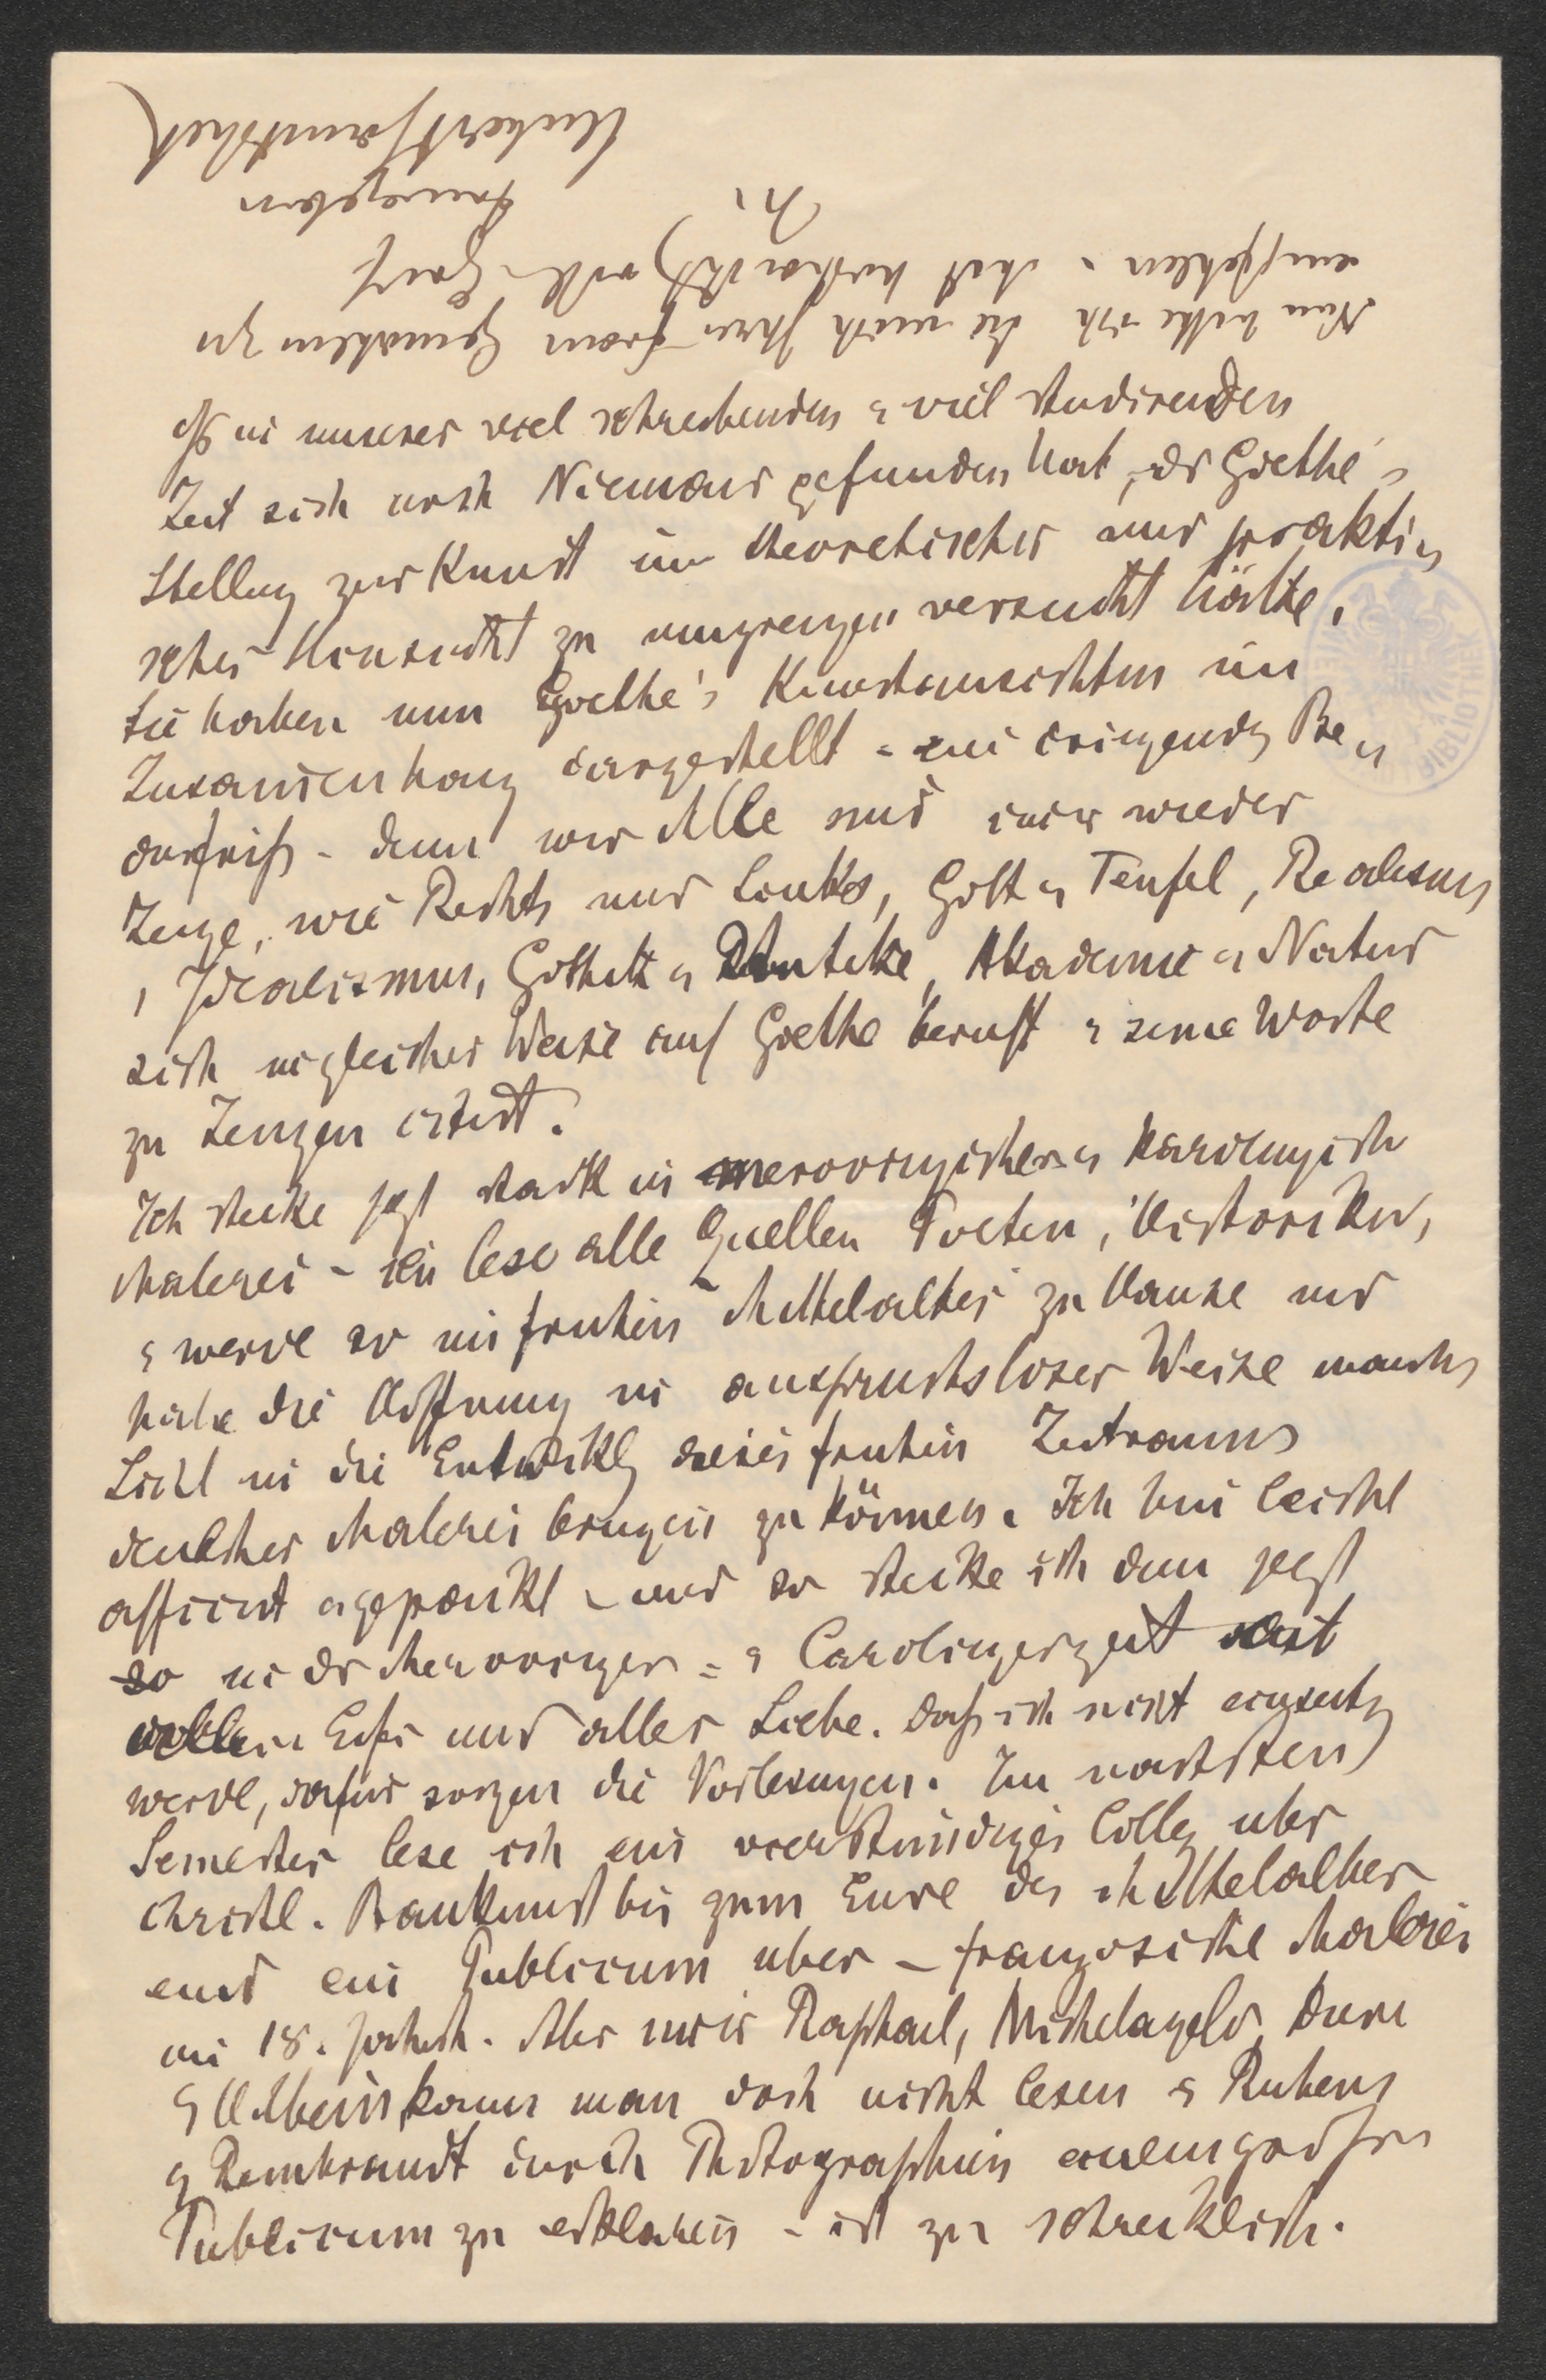 ß in unserer viel schreibenden u viel studirenden
Zeit sich noch Niemand gefunden hat, der Goethe's
Stellung zur Kunst in theoretischer und prakti=
scher Hinsicht zu umgrenzen versucht hätte.
Sie haben nun Goethe's Kunstansichten im
Zusammenhang dargestellt = ein dringendes Be=
dürfniß - denn wir Alle sind immer wieder
Zeuge, wie Rechts und Links, Gott u Teufel, Realismus
, Idealismus, Gothik u Antike, Akademie u Natur
sich in gleicher Weise auf Goethe beruft u seine Worte
zu Zeugen citirt.
Ich stecke jetzt stark in merovingischer u karolingisch
Malerei - ich lese alle Quellen Poeten, Historiker,
u werde so im frühen Mittelalter zu Hause und
habe die Hoffnung in anspruchsloser Weise manches
Licht in die Entwicklg dieses frühen Zeitraums
deutscher Malerei bringen zu können. Ich bin leicht
afficirt u gepackt - und so stecke ich denn jetzt
so in der Merovinger = u Carolingerzeit mit
vollem Eifer und aller Liebe. Daß ich nicht einseitig
werde, dafür sorgen die Vorlesungen. Im nächsten
Semester lese ich ein vierstündiges Colleg über
christl. Baukunst bis zum Ende des Mittelalters
und ein Publicum über - französische Malerei
im 18. Jahrh. Aber immer Raphael, Michelagelo, Dürer
u Holbein kann man doch nicht lesen u Rubens
u Rembrandt durch Photographien einem großen
Publicum zu erklären - ist zu schrecklich.
Nun bitte ich Sie mich Ihrer Frau Gemahlin zu
empfehlen u mit herzl
Ihr
ergebener
Hubert Janitschek